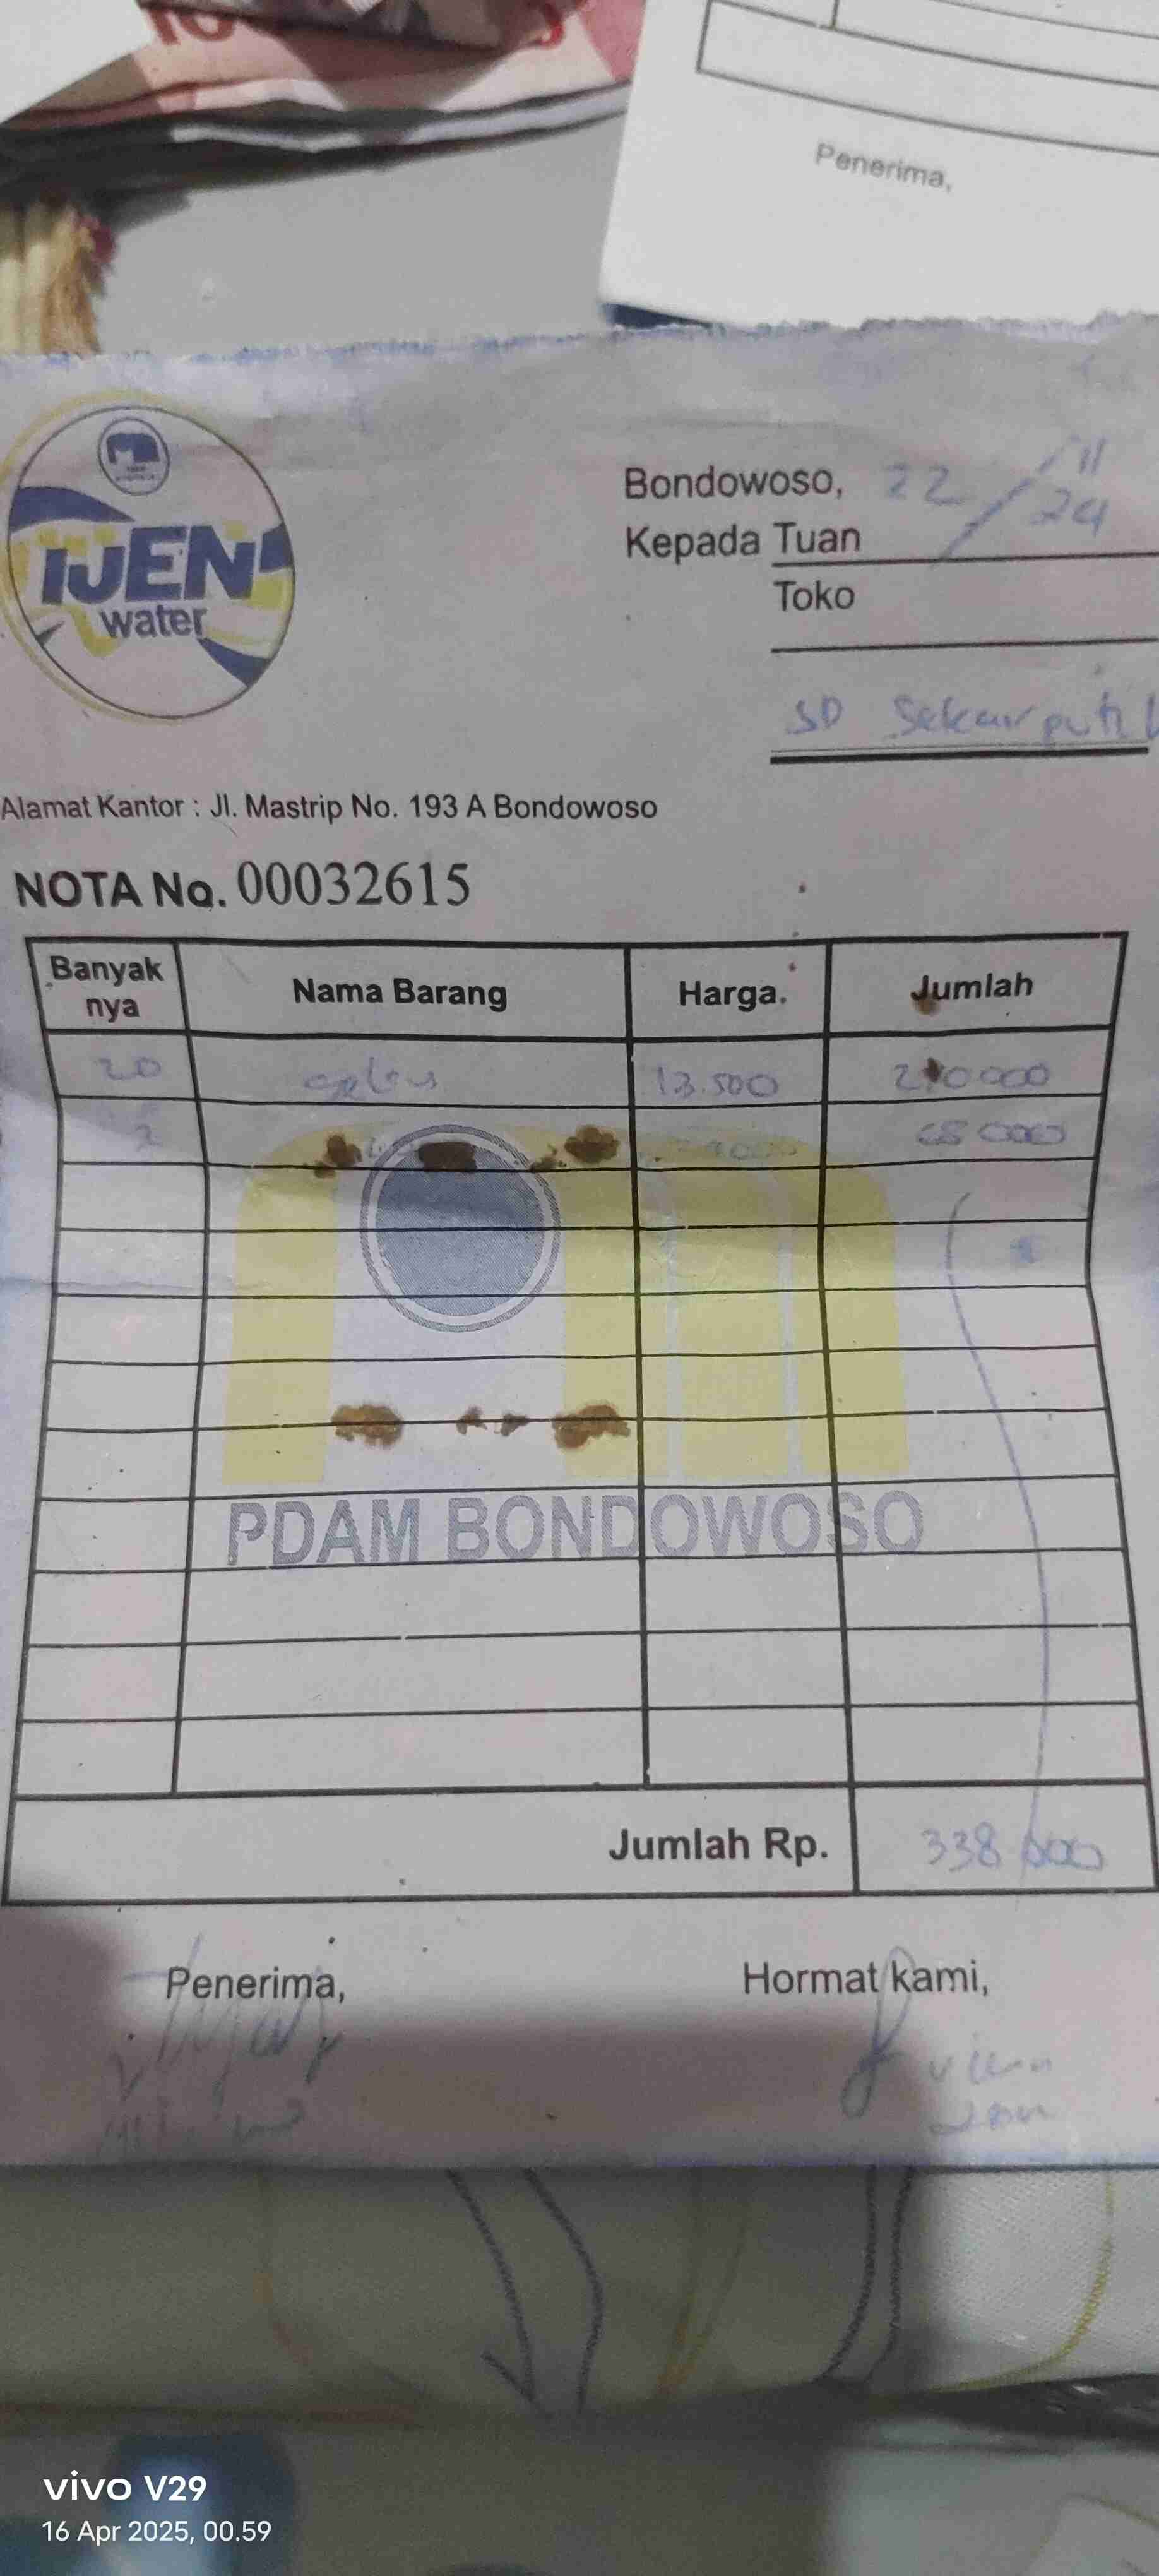 Penerima,
IJEN
water
Bondowoso, 22/11/24
Kepada Tuan
Toko
SD Sekarputih
Alamat Kantor : Jl. Mastrip No. 193 A Bondowoso
NOTA No. 00032615
Banyak nya Nama Barang Harga. Jumlah
20 gelas 13.500 270000
2 68 000
PDAM BONDOWOSO
Jumlah Rp. 338 000
Penerima, Hormat kami,
vivo V29
16 Apr 2025, 00.59